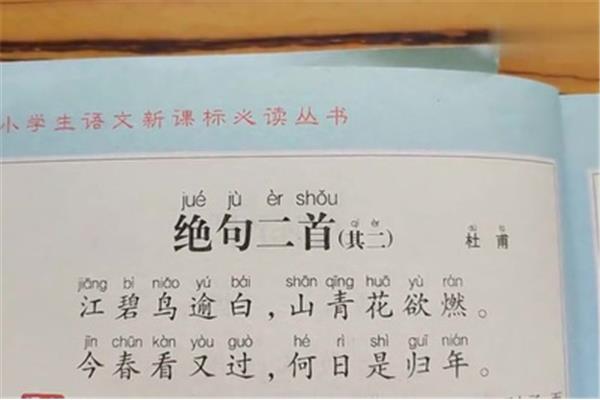 小学生语文新课标必读丛书
jué jù èr shǒu
绝句二首(其二) 杜甫
jiāng bì niǎo yú bái shān qīng huā yù rán
江碧鸟逾白，山青花欲燃。
jīn chūn kàn yòu guò hé rì shì guī nián
今春看又过，何日是归年。